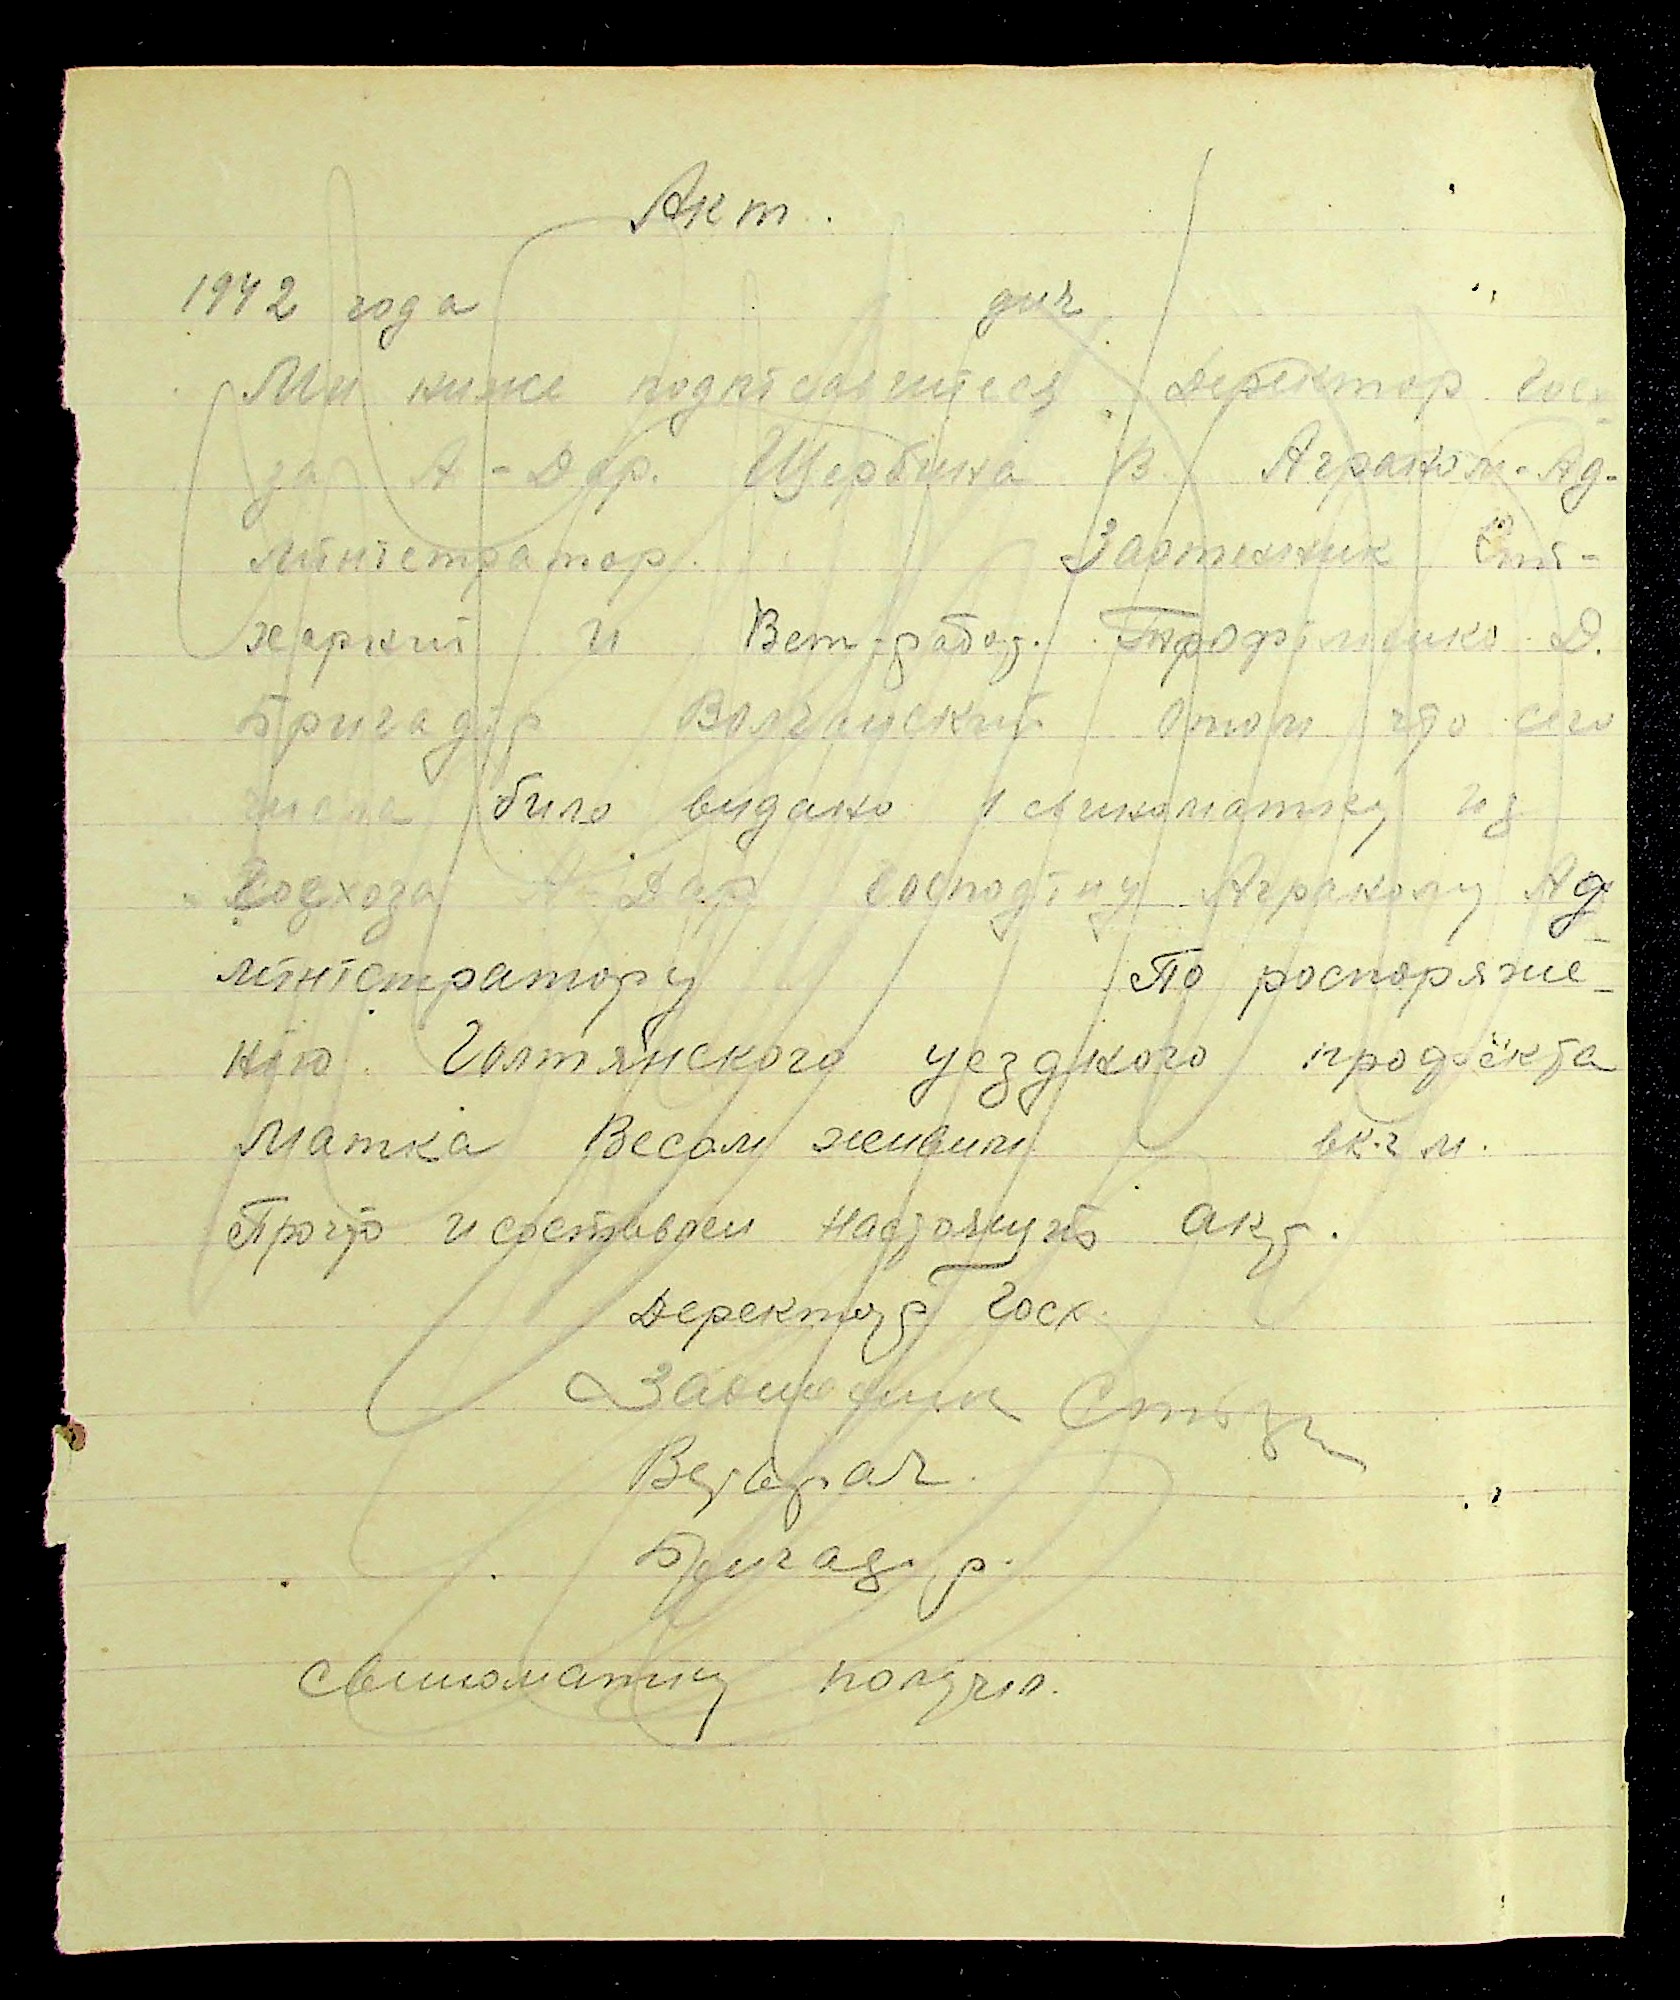 Акт.
1942 года дня
Ми ниже подпісавшіеся Деректор Госх-
за А-Дар. Щербина В. Аграном-Ад-
міністратор. Заотехник Ста-
жеркий и Вет-работ. Трофіменко Д.
Бригадір Волчанский Отом что сего
числа било видано 1 свиноматку из
Госхоза А Дар Господіну Аграному Ад
міністратору По роспоряже-
нію Голтянского уездного продъекта
Матка Весом живим вк-г м.
Прочто и составлен настоящить акт.
Деректор Госх.
Заотехник
Ветврач.
Бригадір.
Свиноматку получил.